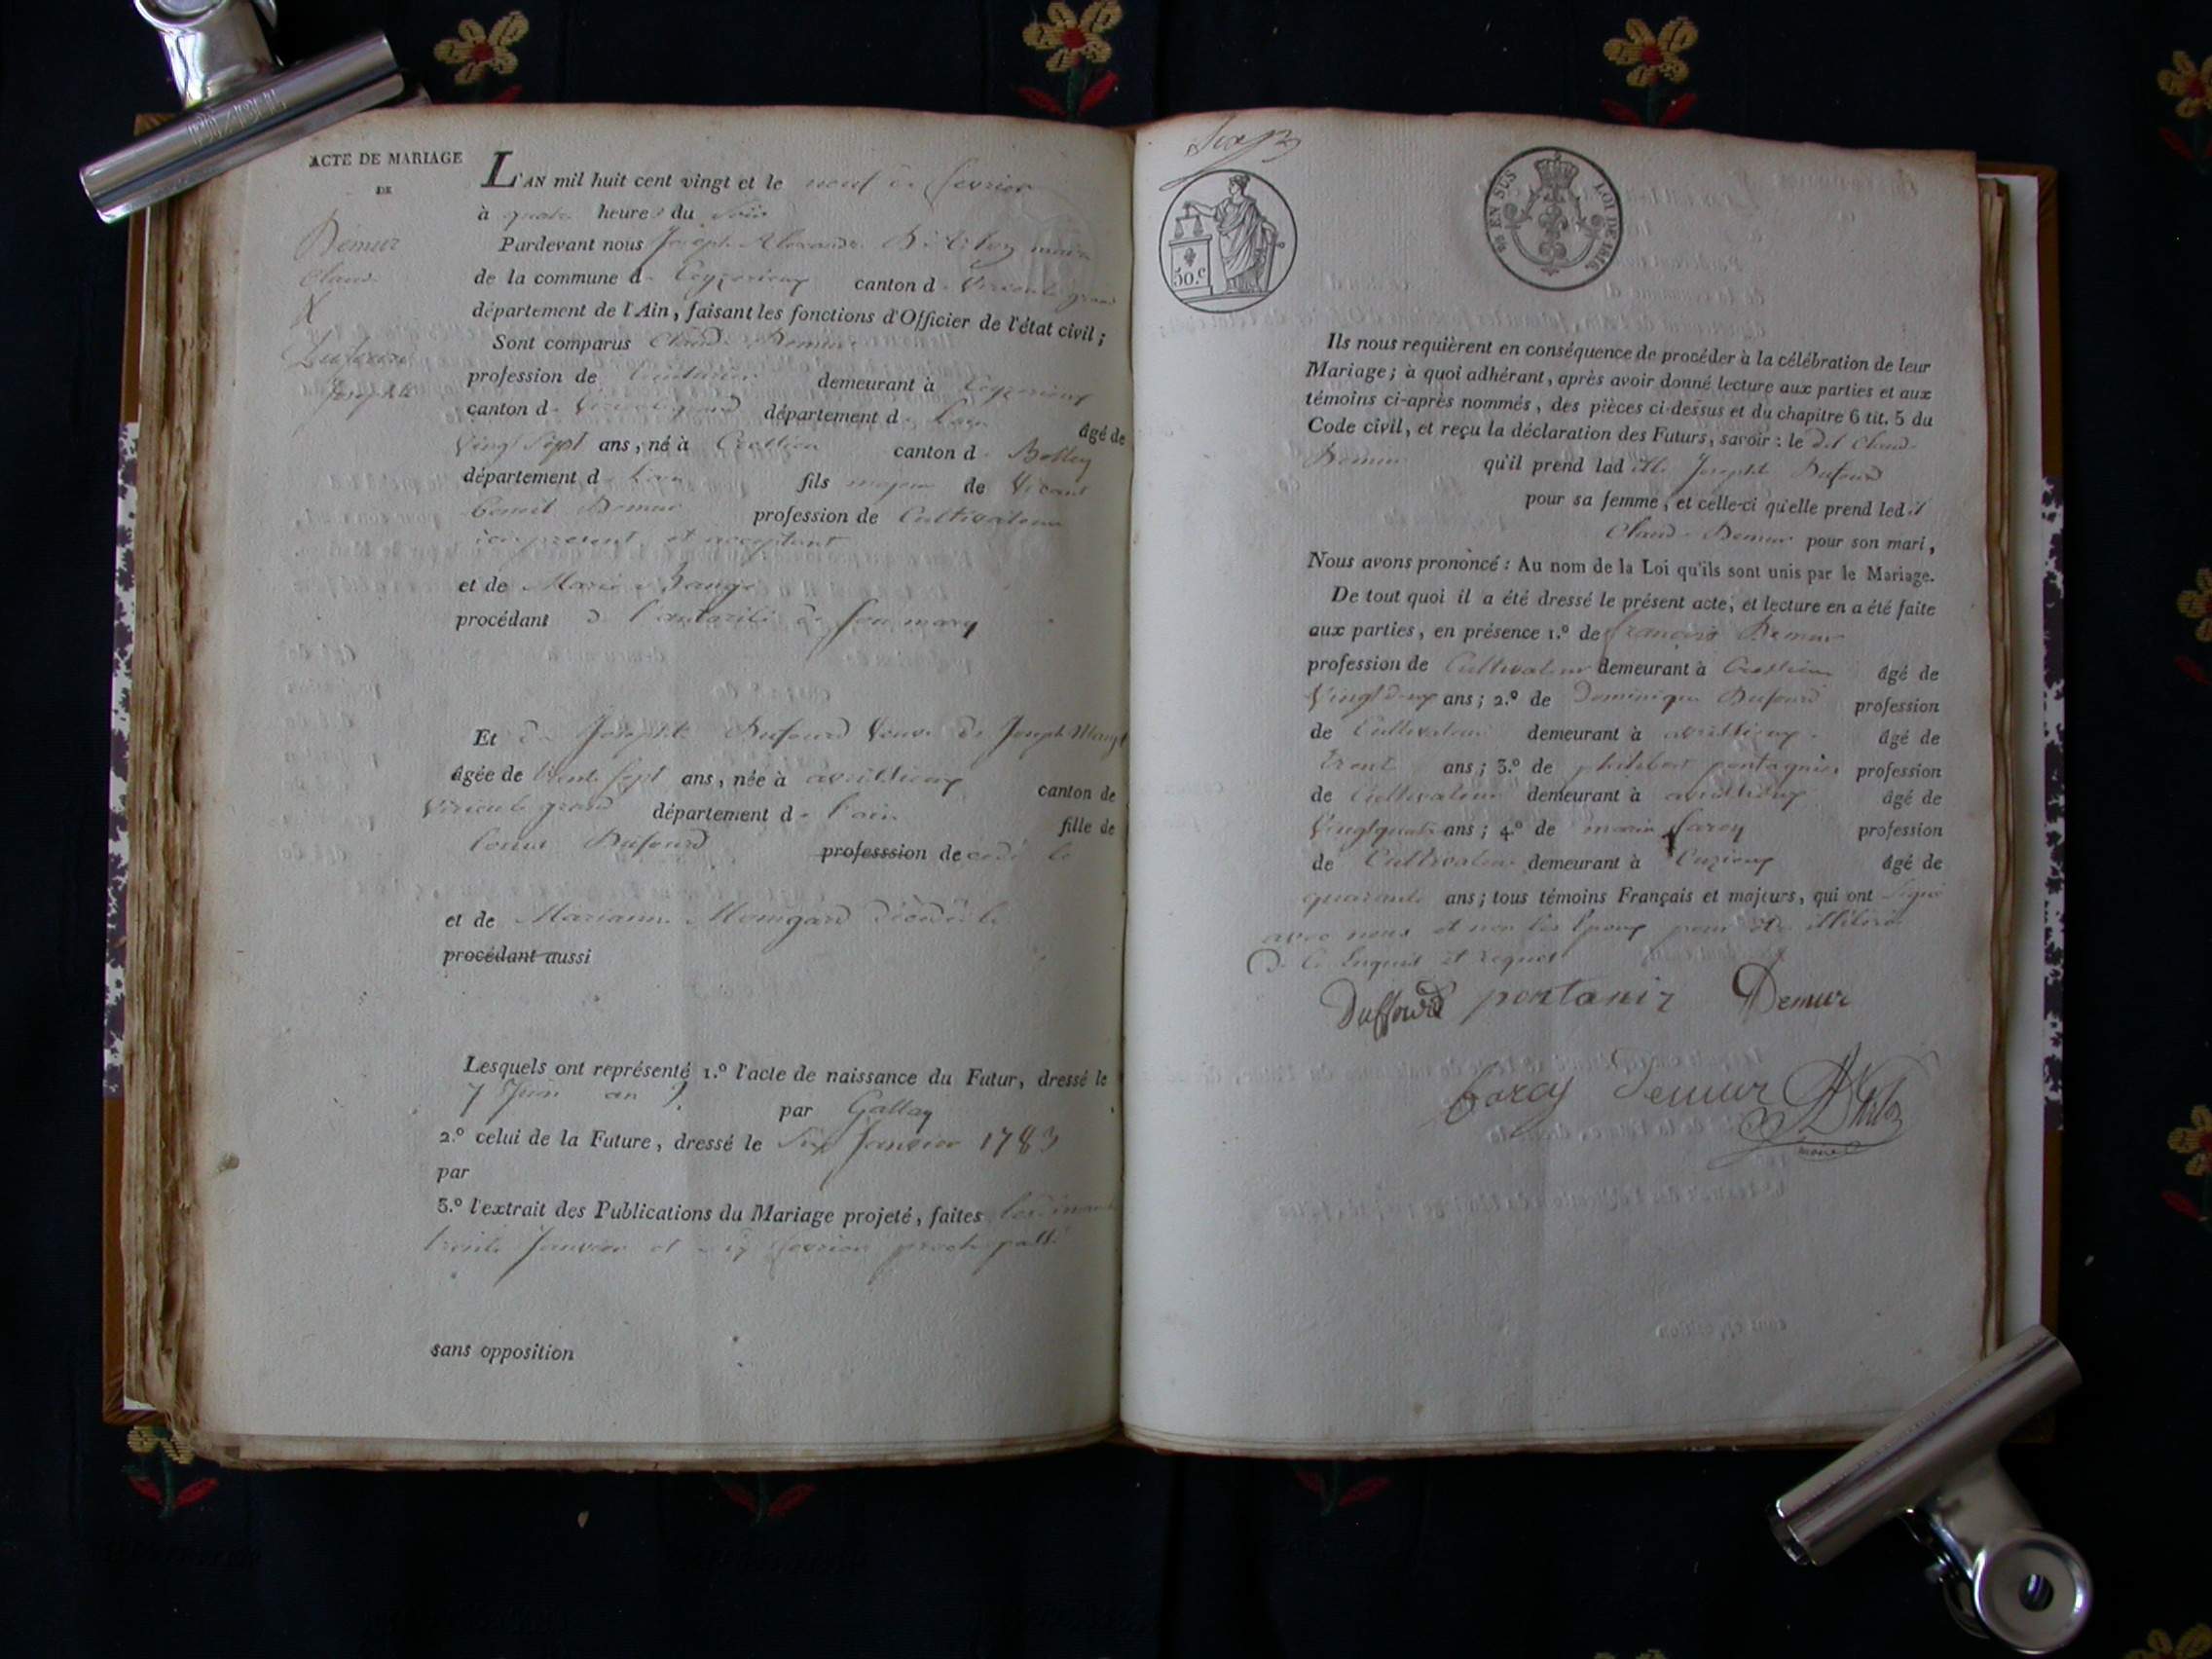 ACTE DE MARIAGE
DE
Demur
Claude
&
Josephte
L'AN mil huit cent vingt et le neuf de fevrier
à quatre heures du soir
Pardevant nous Joseph Alexandre maire
de la commune de Ceyzerieux canton de Virieu le grand
département de l'Ain, faisant les fonctions d'Officier de l'état civil;
Sont comparus Claude Demur
profession de demeurant à Ceyzerieux
canton de Virieu le grand département de L'ain âgé de
Vingt Sept ans, né à Crottieu canton de Belley
département de L'ain fils majeur de Vivant
benoit Demur profession de Cultivateur
icy present et acceptant
et de Marie Bauge
procédant de l'autorité de son mary
Et de Josephte Dufourd Veuve de Joseph
âgée de trente sept ans, née à avrillieux canton de
Virieu le grand département de L'ain fille de
Louis Dufourd professsion de cedé le
et de Marianne Mongard décédée
procédant aussi
Lesquels ont représenté 1.º l'acte de naissance du Futur, dressé le
7 Juin an par Gallay
2.º celui de la Future, dressé le Six Janvier 1783
par
3.º l'extrait des Publications du Mariage projeté, faites les dimanches
trente Janvier et six fevrier proche passé
sans opposition
Six
50.c
EN SUS
LOI DE 1816.
Ils nous requièrent en conséquence de procéder à la célébration de leur
Mariage; à quoi adhérant, après avoir donné lecture aux parties et aux
témoins ci-après nommés, des pièces ci-dessus et du chapitre 6 tit. 5 du
Code civil, et reçu la déclaration des Futurs, savoir: le dit Claude
Demur qu'il prend lad itte Josephte Dufourd
pour sa femme, et celle-ci qu'elle prend led it
Claude Demur pour son mari,
Nous avons prononcé: Au nom de la Loi qu'ils sont unis par le Mariage.
De tout quoi il a été dressé le présent acte, et lecture en a été faite
aux parties, en présence 1.º de françois Demur
profession de Cultivateur demeurant à Crottieu âgé de
Vingt deux ans; 2.º de Dominique Dufourd profession
de Cultivateur demeurant à avrillieux âgé de
trente ans; 3.º de philibert pontagnier profession
de Cultivateur demeurant à avrillieux âgé de
Vingt quatre ans; 4.º de marin Carcy profession
de Cultivateur demeurant à Cuzieux âgé de
quarante ans; tous témoins Français et majeurs, qui ont signé
avec nous et non les Epoux pour être illiterés
de ce Enquis et requis
Duffourd pontanir Demur
Carcy Demur
maire